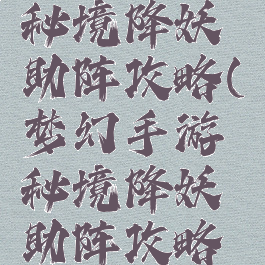 秘境降妖
助阵攻略(
梦幻手游
秘境降妖
助阵攻略